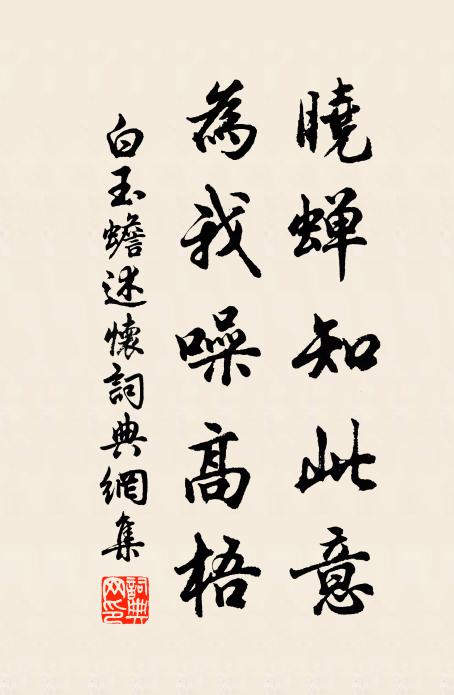 曉蝉知此意
為我噪高梧
白玉蟾述懷詞典網集
詞典網印